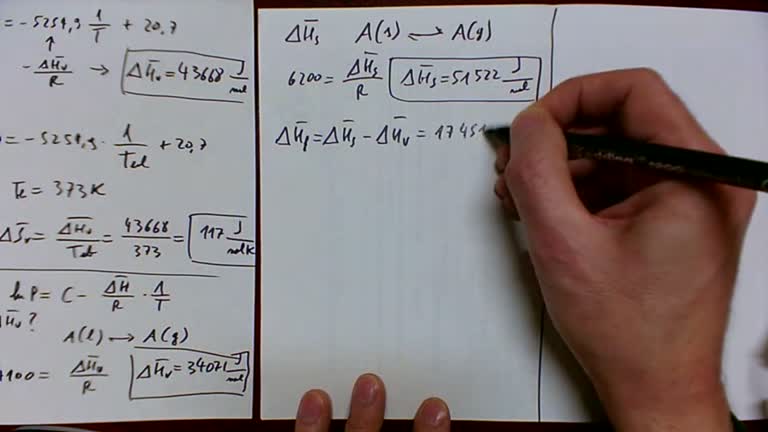 = -5254,9 1/T + 20,7
-ΔH̄v/R → ΔH̄v = 43668 J/mol
= -5254,9 · 1/Teb + 20,7
Te = 373 K
ΔS̄v = ΔH̄v/Teb = 43668/373 = 117 J/molK
ln P = C - ΔH̄/R · 1/T
ΔH̄v?
A(l) → A(g)
4100 = ΔH̄v/R ΔH̄v = 34021 J/mol
ΔH̄s A(s) ⇌ A(g)
6200 = ΔH̄s/R ΔH̄s = 51522 J/mol
ΔH̄f = ΔH̄s - ΔH̄v = 17451